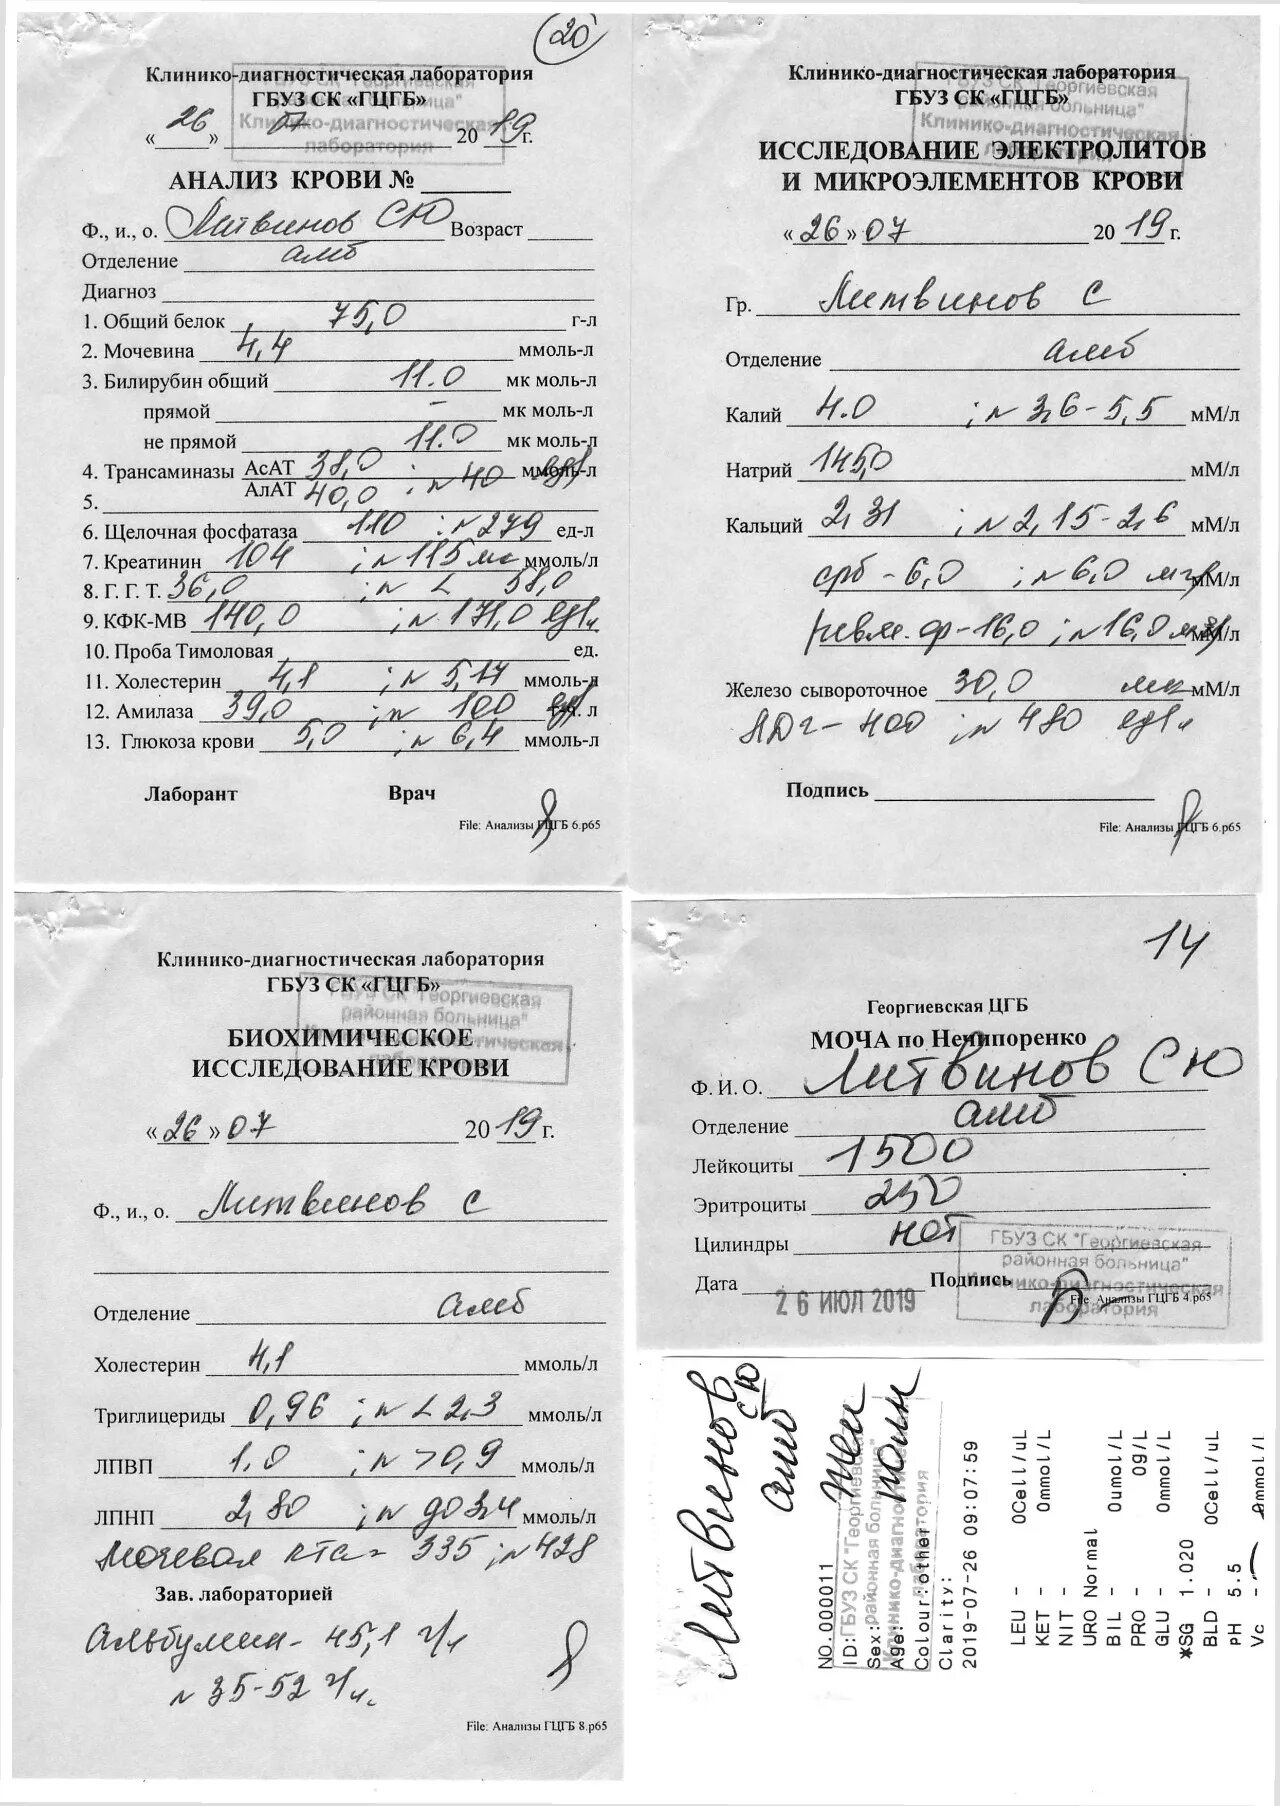 20
Клинико-диагностическая лаборатория
ГБУЗ СК «ГЦГБ»
« 26 » 07 20 19 г.
АНАЛИЗ КРОВИ №
Ф., и., о. Литвинов СЮ Возраст
Отделение амб
Диагноз
1. Общий белок 75,0 г-л
2. Мочевина 4,4 ммоль-л
3. Билирубин общий 11.0 мк моль-л
прямой – мк моль-л
не прямой 11.0 мк моль-л
4. Трансаминазы АсАТ 38,0 ; N 40 ммоль-л ед/л
5. АлАТ 40,0
6. Щелочная фосфатаза 110 ; N 279 ед-л
7. Креатинин 104 ; N 115 мк ммоль/л
8. Г. Г. Т. 36,0 ; N < 58,0
9. КФК-МВ 140,0 ; N 171,0 ед/л
10. Проба Тимоловая ед.
11. Холестерин 4,1 ; N 5,17 ммоль-л
12. Амилаза 39,0 ; N 100 ед/л л
13. Глюкоза крови 5,0 ; N 6,4 ммоль-л
Лаборант Врач
File: Анализы ГЦГБ 6.p65
Клинико-диагностическая лаборатория
ГБУЗ СК «ГЦГБ»
ГБУЗ СК "Георгиевская
районная больница"
Клинико-диагностическая
лаборатория
ИССЛЕДОВАНИЕ ЭЛЕКТРОЛИТОВ
И МИКРОЭЛЕМЕНТОВ КРОВИ
« 26 » 07 20 19 г.
Гр. Литвинов С
Отделение амб
Калий 4.0 ; N 3,6-5,5 мМ/л
Натрий 145,0 мМ/л
Кальций 2,31 ; N 2,15-2,6 мМ/л
срб - 6,0 ; N 6,0 мг/л мМ/л
ревм. ф - 16,0 ; N 16,0 мМ/л
Железо сывороточное 30,0 мк мМ/л
ЛДГ - 400 ; N 480 ед/л
Подпись
File: Анализы ГЦГБ 6.p65
Клинико-диагностическая лаборатория
ГБУЗ СК «ГЦГБ»
ГБУЗ СК "Георгиевская
районная больница"
Клинико-диагностическая
лаборатория
БИОХИМИЧЕСКОЕ
ИССЛЕДОВАНИЕ КРОВИ
« 26 » 07 20 19 г.
Ф., и., о. Литвинов С
Отделение амб
Холестерин 4,1 ммоль/л
Триглицериды 0,96 ; N < 2,3 ммоль/л
ЛПВП 1.0 ; N >0,9 ммоль/л
ЛПНП 2,80 ; N до 3,4 ммоль/л
Мочевая к-та - 335 ; N 428
Зав. лабораторией
Альбумин - 45,1 г/л
N 35-52 г/л.
File: Анализы ГЦГБ 8.p65
14
Георгиевская ЦГБ
МОЧА по Нечипоренко
Ф. И. О. Литвинов СЮ
Отделение амб
Лейкоциты 1500
Эритроциты 250
Цилиндры нет
Дата 26 ИЮЛ 2019 Подпись
ГБУЗ СК "Георгиевская
районная больница"
Клинико-диагностическая
лаборатория
File: Анализы ГЦГБ 4.p65
Литвинов
СЮ
амб
NO.000011
ID:
Sex:
Age:
Colour:other
Clarity:
2019-07-26 09:07:59
LEU - 0Cell/uL
KET - 0mmol/L
NIT -
URO Normal
BIL - 0umol/L
PRO - 0g/L
GLU - 0mmol/L
*SG 1.020
BLD - 0Cell/uL
pH 5.5
Vc - 0mmol/L